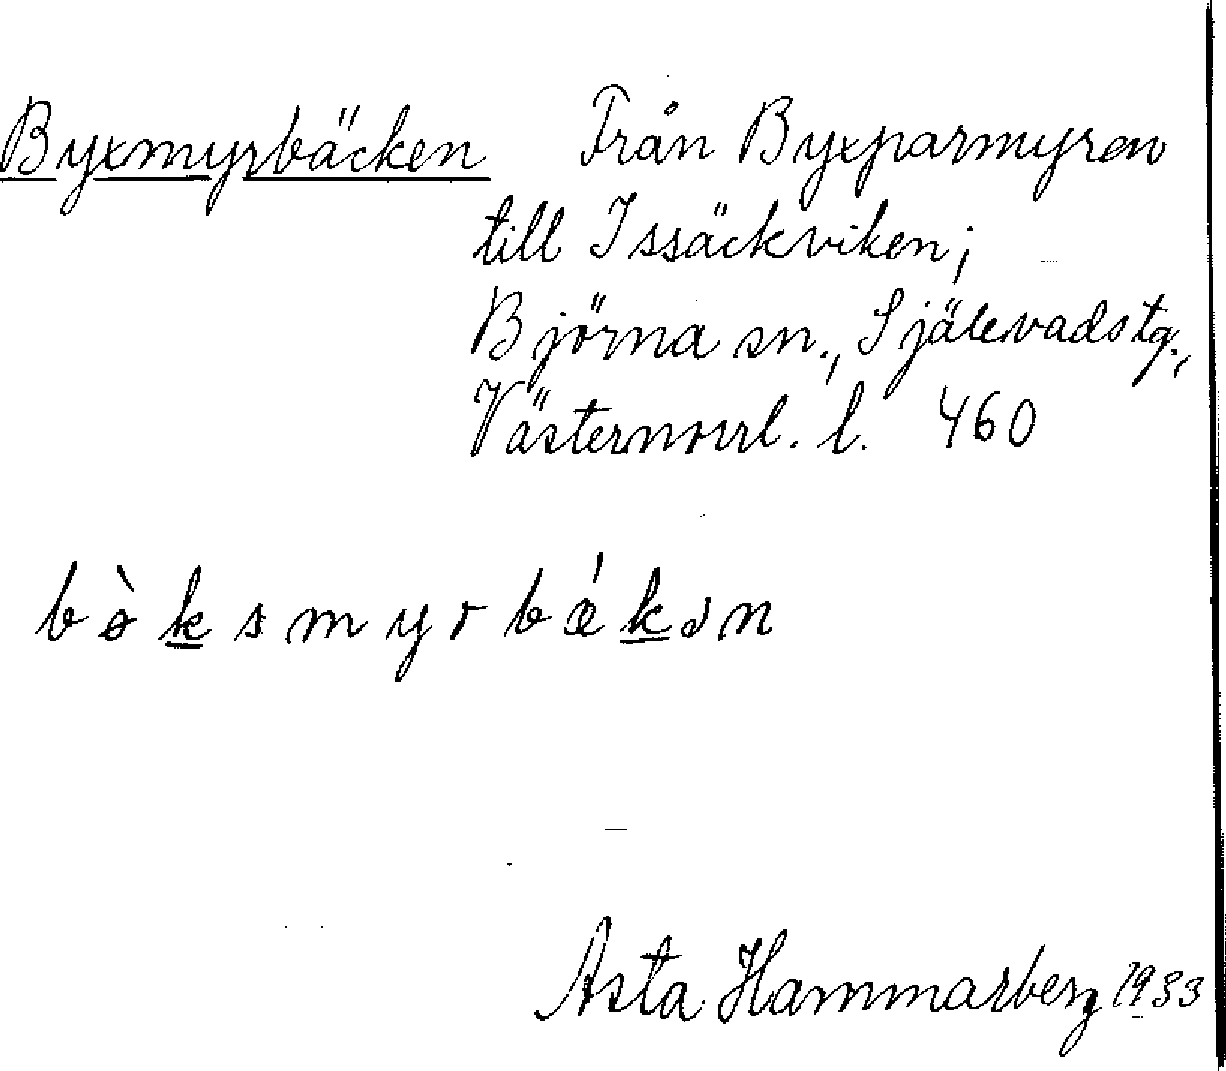 Byxmyrbäcken Från Byxparmyren
till Issäckviken;
Björna sn., Själevads tg.,
Västernorrl. l. 460
bò̵ksmyrbǽkən
Asta Hammarberg 1933